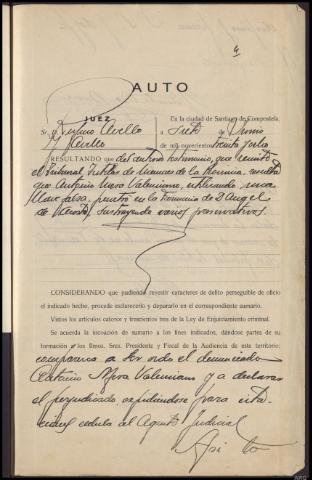 4
AUTO
JUEZ
En la ciudad de Santiago de Compostela,
Sr. D.
a siete de Junio
de mil novecientos treinta
RESULTANDO que del anterior testimonio, que remite
el Tribunal Tutelar de Menores de la Coruña, resulta
que Antonio Mera Valenciano, utilizando una
llave falsa, penetró en la D. Angel
de sustrayendo varios preservativos.
CONSIDERANDO que pudiendo revestir caracteres de delito perseguible de oficio
el indicado hecho, procede esclarecerlo y depurarlo en el correspondiente sumario.
Vistos los artículos catorce y trescientos tres de la Ley de Enjuiciamiento criminal.
Se acuerda la incoación de sumario a los fines indicados, dándose partes de su
formación a los Ilmos. Sres. Presidente y Fiscal de la Audiencia de este territorio;
comparezca a ser oido el denunciado
Antonio Mera Valenciano y a declarar
el perjudicado expidiéndose para su cita-
cion cedula al Agente Judicial
Asi lo